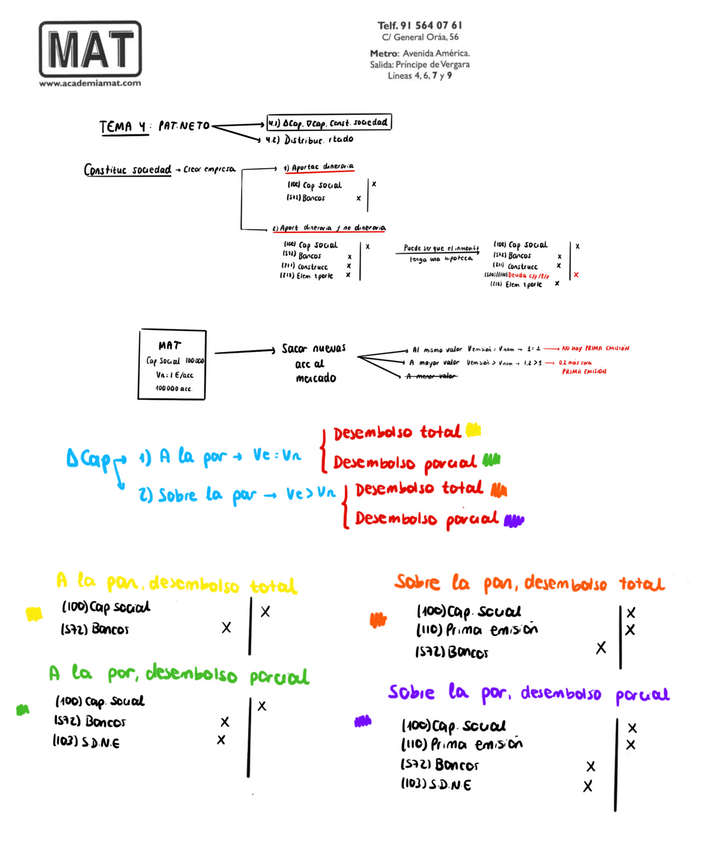 MAT
www.academiamat.com
Telf. 91 564 07 61
C/ General Oráa, 56
Metro: Avenida América.
Salida: Príncipe de Vergara
Líneas 4, 6, 7 y 9
TEMA 4: PAT.NETO
4.1) Δ Cap. ∇ Cap. Const. sociedad
4.2) Distribuc. rtado
Constituc sociedad → Crear empresa
1) Aportac dineraria
(100) Cap Social x
(572) Bancos x
2) Aport dineraria y no dineraria
(100) Cap Social x
(572) Bancos x
(211) Construcc x
(218) Elem tporte x
Puede ser que el inmovil
tenga una hipoteca
(100) Cap Social x
(572) Bancos x
(211) Construcc x
Deuda c/p/l/p x
(218) Elem tporte x
MAT
Cap Social 100000
Vn: 1 €/acc
100000 acc.
Sacar nuevas
acc al
mercado
Al mismo valor Vemisión = Vnom → 1 = 1 → NO HAY PRIMA EMISIÓN
A mayor valor Vemisión > Vnom → 1,2 > 1 → 0,2 más cara
PRIMA EMISIÓN
A menor valor
Δ Cap → 1) A la par → Ve = Vn
Desembolso total
Desembolso parcial
2) Sobre la par → Ve > Vn
Desembolso total
Desembolso parcial
A la par, desembolso total
(100) Cap social x
(572) Bancos x
A la par, desembolso parcial
(100) Cap. Social x
(572) Bancos x
(103) S.D.N.E x
Sobre la par, desembolso total
(100) Cap. Social x
(110) Prima emisión x
(572) Bancos x
Sobre la par, desembolso parcial
(100) Cap. Social x
(110) Prima emisión x
(572) Bancos x
(103) S.D.N E x